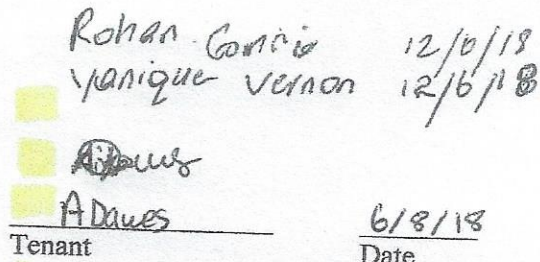 Rohan 12/6/18
Yanique Vernon 12/6/18
ADawes 6/8/18
Tenant Date